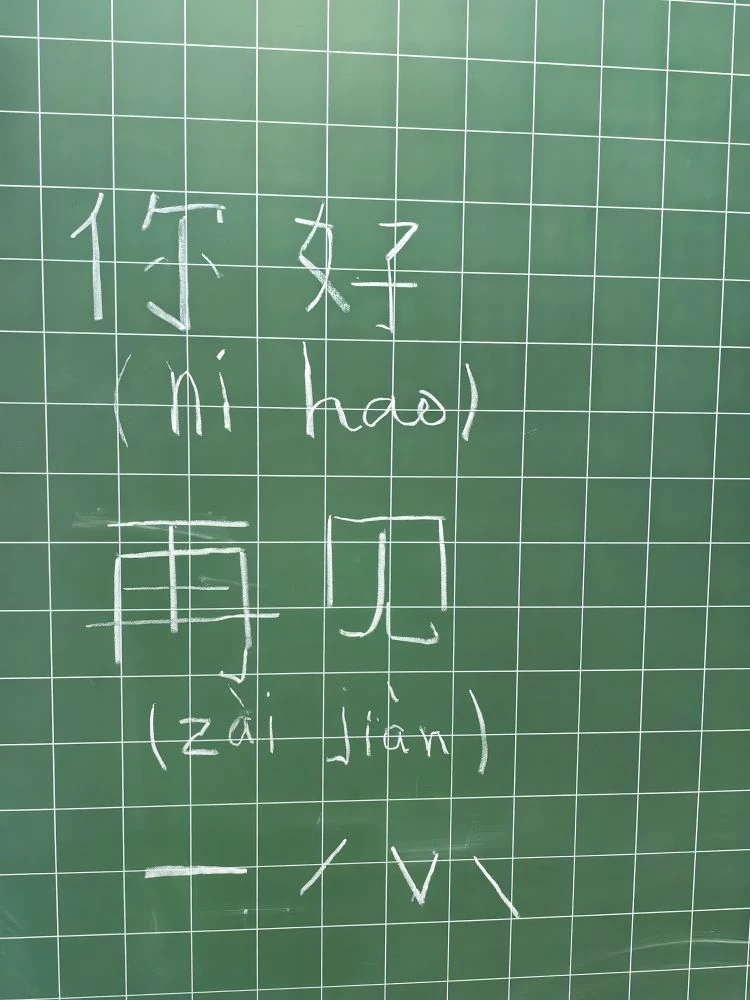 你好
(ni hao)
再见
(zài jiàn)
ˉ ˊ ˇ ˋ